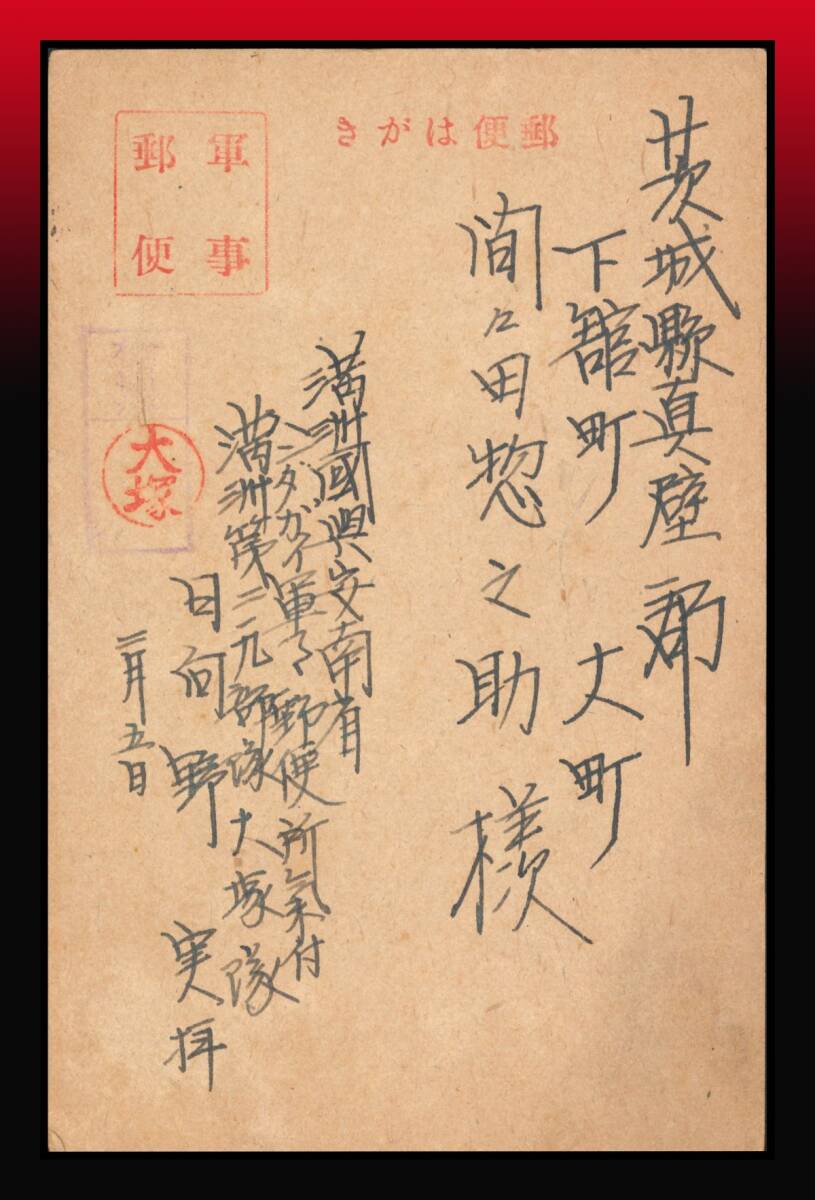 郵便はがき
軍事
郵便
茨城縣真壁郡
下舘町 大町
間々田惣之助 様
満洲國興安南省
ハンダガイ軍事郵便所氣付
満洲第二一九部隊大塚隊
日向野 実拝
三月五日
大塚